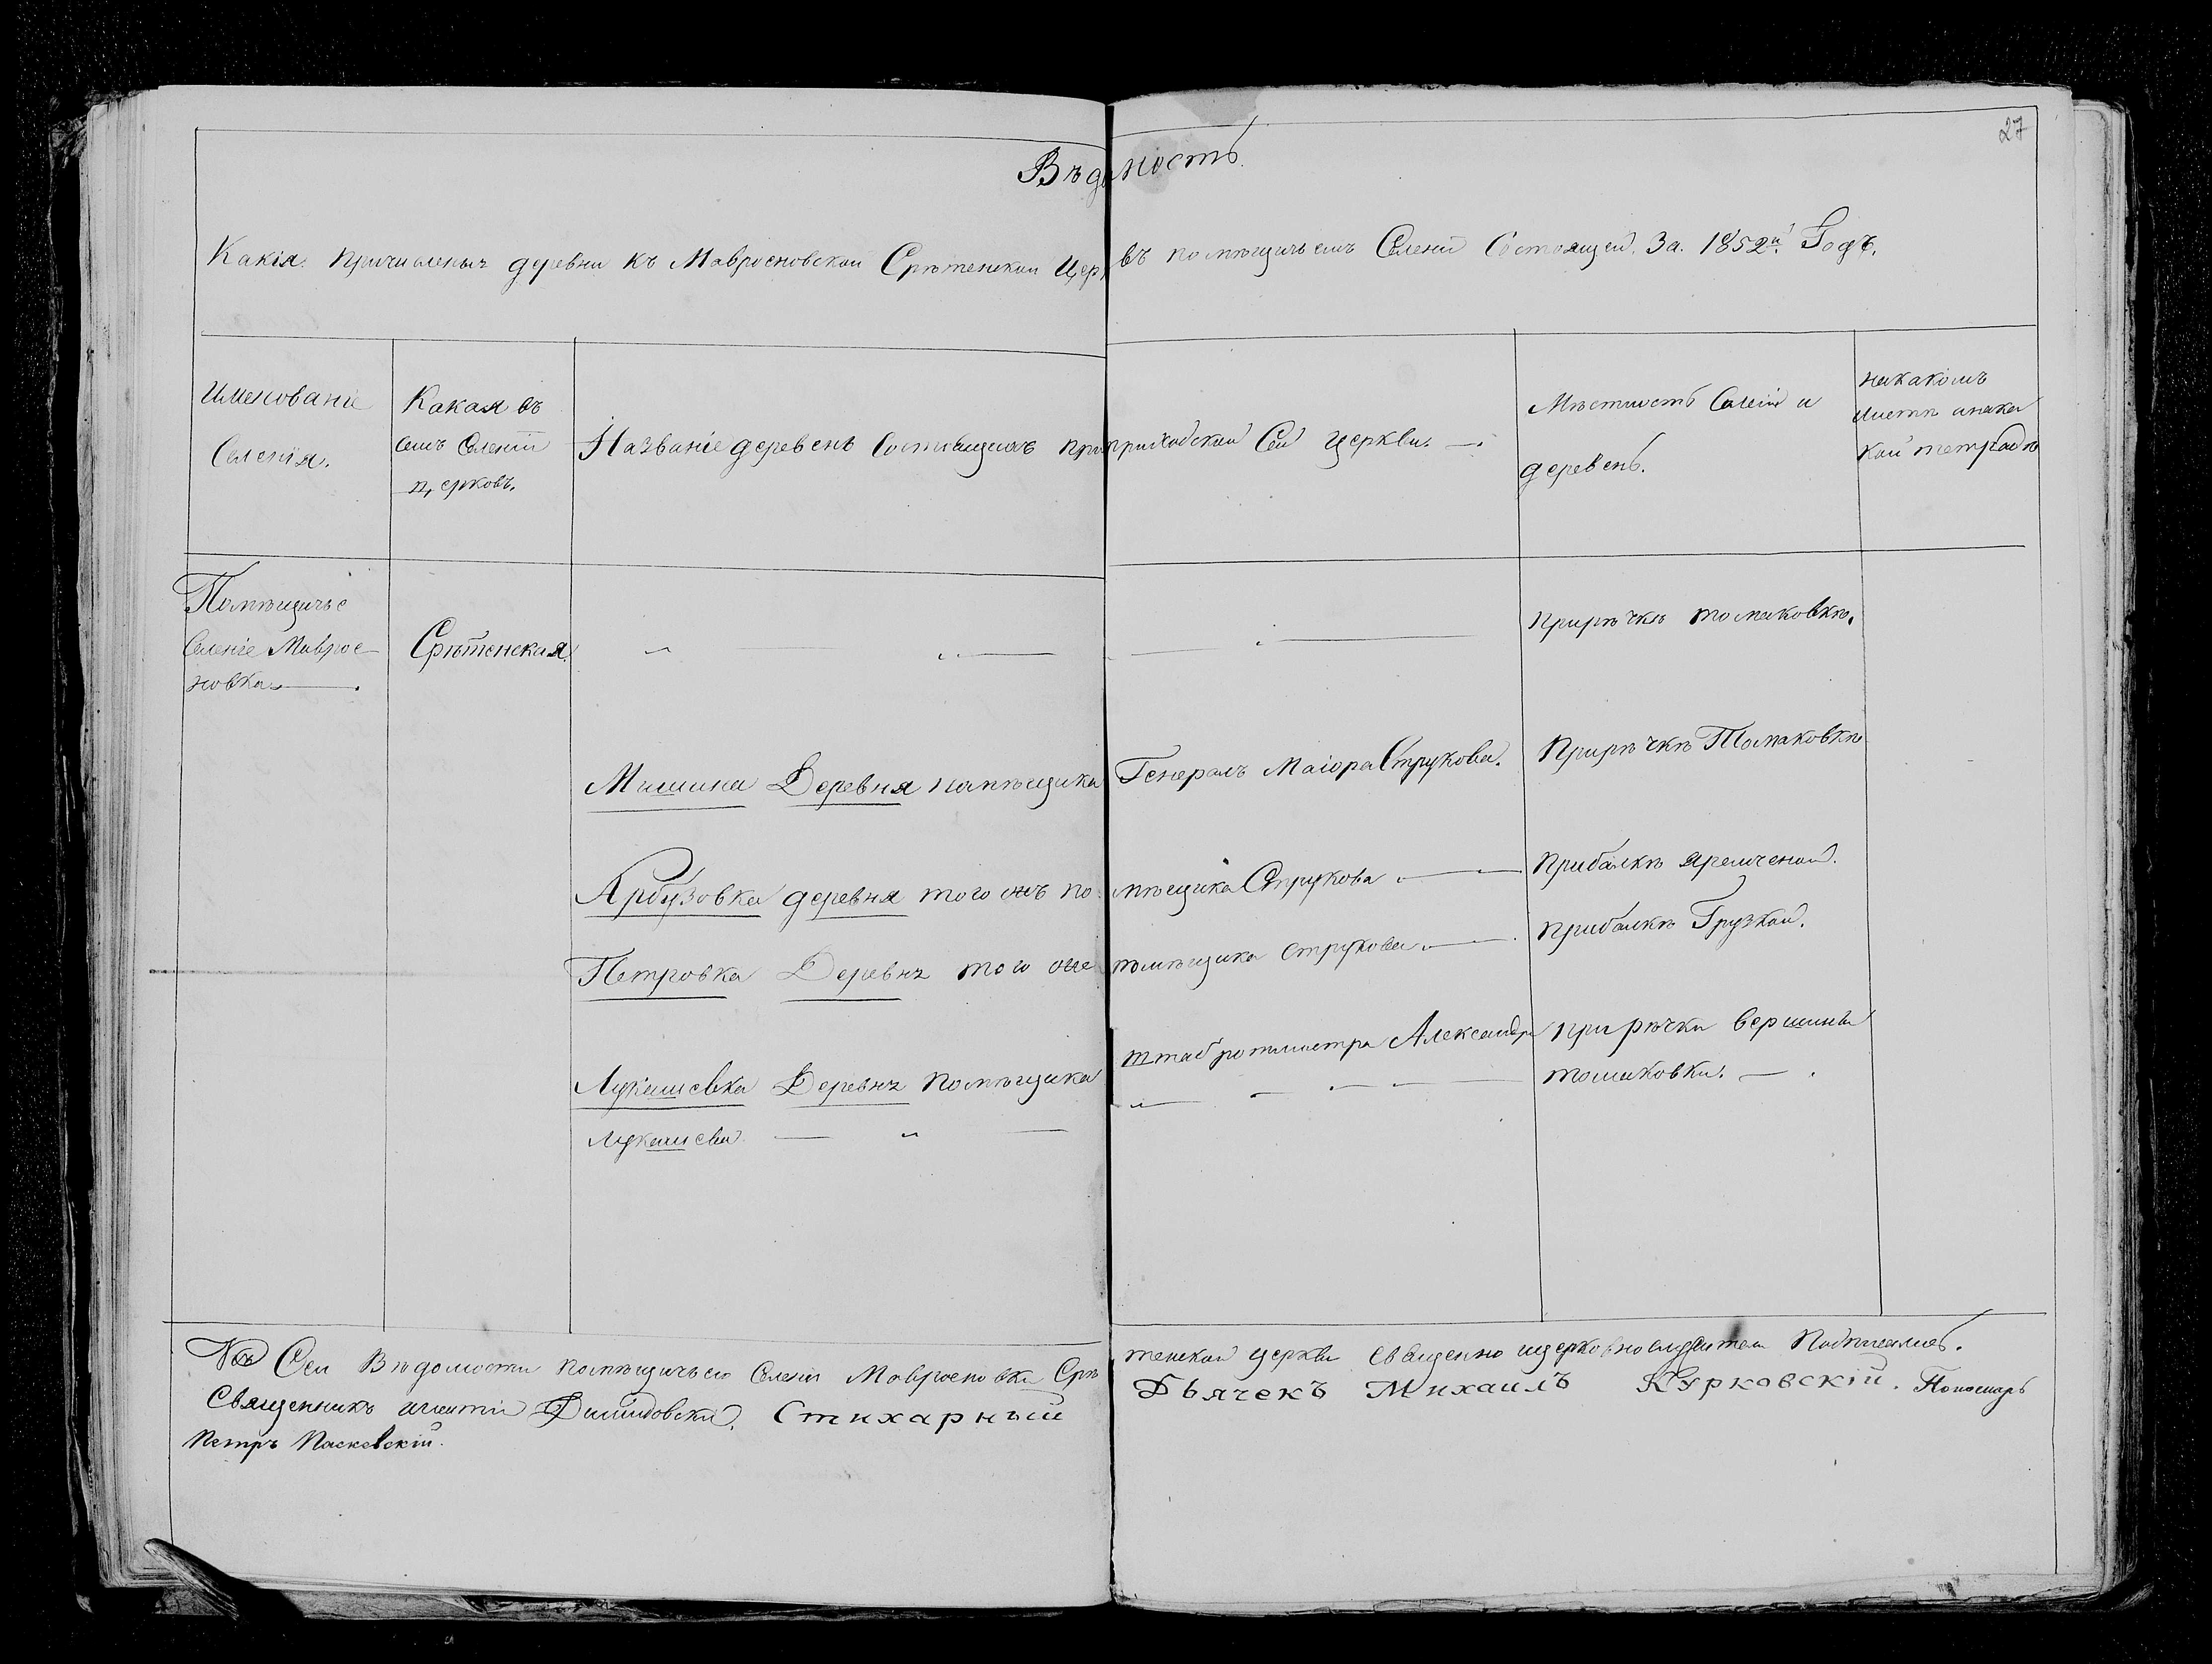 27
Вѣдомость.
Какія Причислены деревни къ Мавросновской Срѣтенской Цер въ помѣщичьемъ Селеніи Состоящей. За. 1852й Годъ.
Именованіе
Селенія.
Какая въ
семъ Селеніи
церковь.
Названіе деревень Состоящихъ при приходской Сей церкви.
Мѣстность Селеній и
деревень.
накакомъ
листѣ инака
кой тетрадѣ
Помѣщичье
Селеніе Маврос-
новка
Срѣтенская
прирѣчкѣ томаковкѣ.
Мишина Деревня помѣщика Генералъ Маіора Струкова.
Прирѣчкѣ Томаковкѣ
Арбузовка деревня того жъ по мѣщика Струкова
Прибалкѣ яремченой.
Петровка Деревня того же помѣщика Струкова
прибалкѣ Грузкой.
Лукашевка Деревня Помѣщика штаб ротмистра Александра
Лукашева
при рѣчки вершины
томаковки.
Къ Сей Вѣдомости помѣщичьего Селенія Мавросновки Срѣ тенской церкви священно ицерковнослужители Подписались.
Священникъ Димидовскій. Стихарный Дьячекъ Михаилъ Курковскій. Пономарь
Петръ Пасковскій.